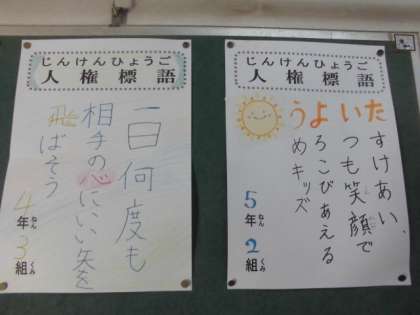 じんけんひょうご
人権標語
一日何度も
相手の心にいい矢を
飛ばそう
4年3組
ねん くみ
じんけんひょうご
人権標語
たすけあい、
いつも笑顔で
よろこびあえる
うめキッズ
5年2組
ねん くみ